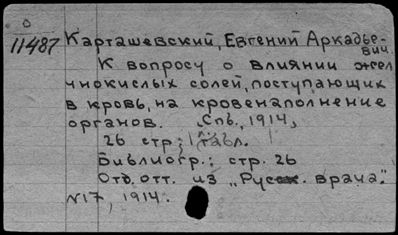 11487
Карташевский, Евгений Аркадье-
вич.
К вопросу о влиянии жел
чнокислых солей, поступающих
в кровь, на кровенаполнение
органов. Спб., 1914,
26 стр.; табл.
Библиогр.: стр. 26
Отд. отт. из „Русск. врача".
№17, 1914.